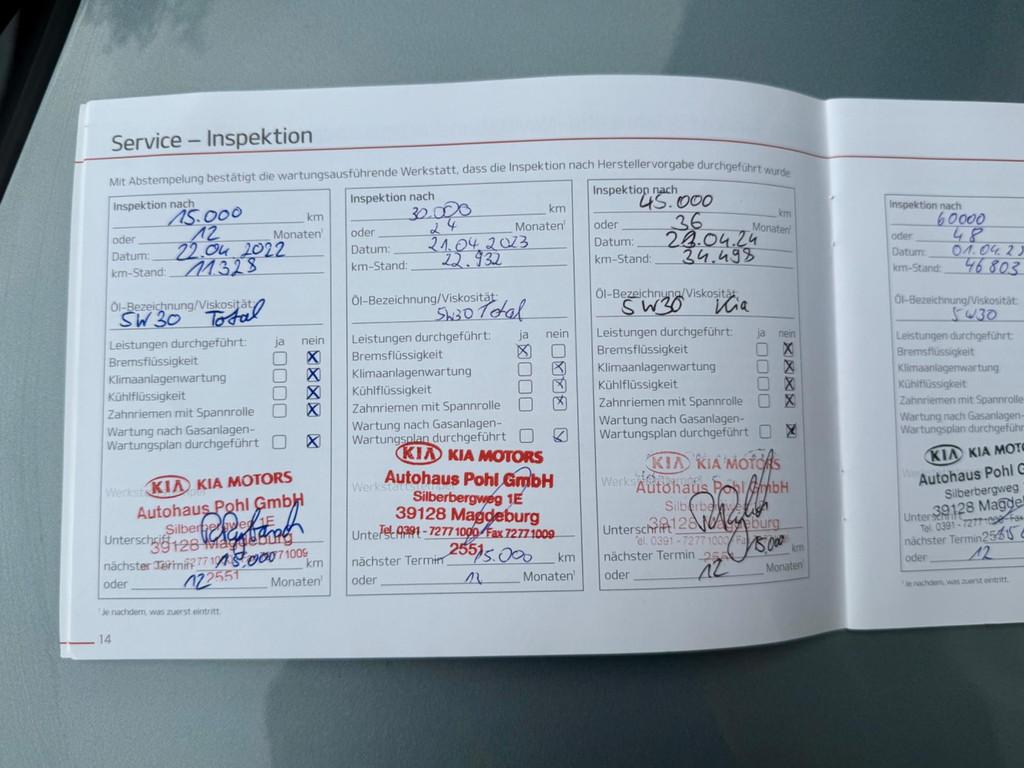 Service – Inspektion
Mit Abstempelung bestätigt die wartungsausführende Werkstatt, dass die Inspektion nach Herstellervorgabe durchgeführt wurde
Inspektion nach
15.000 km
oder 12 Monaten¹
Datum: 22.04 2022
km-Stand: 11328
Öl-Bezeichnung/Viskosität:
5W30 Total
Leistungen durchgeführt: ja nein
Bremsflüssigkeit X
Klimaanlagenwartung X
Kühlflüssigkeit X
Zahnriemen mit Spannrolle X
Wartung nach Gasanlagen-
Wartungsplan durchgeführt X
KIA KIA MOTORS
Autohaus Pohl GmbH
Silberbergweg 1E
39128 Magdeburg
Unterschrift
nächster Termin 15.000 km
2551
oder 12 Monaten¹
¹ Je nachdem, was zuerst eintritt.
14
Inspektion nach
30.000 km
oder 24 Monaten¹
Datum: 21.04.2023
km-Stand: 22.932
Öl-Bezeichnung/Viskosität:
5W30 Total
Leistungen durchgeführt: ja nein
Bremsflüssigkeit X
Klimaanlagenwartung X
Kühlflüssigkeit X
Zahnriemen mit Spannrolle X
Wartung nach Gasanlagen-
Wartungsplan durchgeführt X
KIA KIA MOTORS
Autohaus Pohl GmbH
Silberbergweg 1E
39128 Magdeburg
Tel. 0391 - 7277 1000 - Fax 7277 1009
Unterschrift
2551
nächster Termin 15.000 km
oder Monaten¹
Inspektion nach
45.000 km
oder 36 Monaten¹
Datum: 23.04.24
km-Stand: 34.498
Öl-Bezeichnung/Viskosität:
5W30 Kia
Leistungen durchgeführt: ja nein
Bremsflüssigkeit X
Klimaanlagenwartung X
Kühlflüssigkeit X
Zahnriemen mit Spannrolle X
Wartung nach Gasanlagen-
Wartungsplan durchgeführt X
KIA KIA MOTORS
Autohaus Pohl GmbH
Silberbergweg 1E
39128 Magdeburg
Unterschrift
nächster Termin 15.000 km
oder 12 Monaten¹
Inspektion nach
60000
oder 48
Datum: 01.04.2
km-Stand: 46803
Öl-Bezeichnung/Viskosität:
5W30
Leistungen durchgeführt:
Bremsflüssigkeit
Klimaanlagenwartung
Kühlflüssigkeit
Zahnriemen mit Spannrolle
Wartung nach Gasanlagen-
Wartungsplan durchgeführt
KIA KIA MOTO
Autohaus Pohl G
Silberbergweg 1E
39128 Magde
Unterschrift
nächster Termin
oder 12
¹ Je nachdem, was zuerst eintritt.